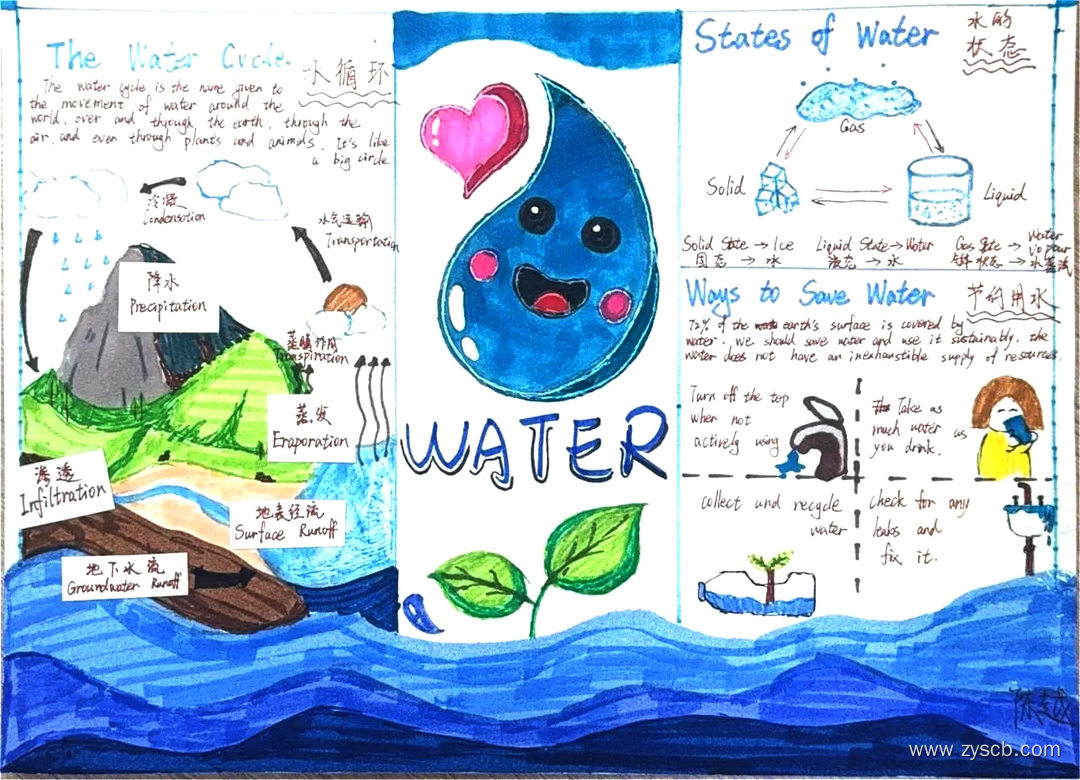 The Water Cycle.
水循环
The water cycle is the name given to
the movement of water around the
world, over and through the earth, through the
air, and even through plants and animals. It's like
a big circle.
冷凝
Condensation
水气运输
Transportation
降水
Precipitation
蒸腾作用
Transpiration
蒸发
Evaporation
渗透
Infiltration
地表径流
Surface Runoff
地下水流
Groundwater Runoff
WATER
States of Water
水的
状态
Gas
Solid
Liquid
Solid State → Ice
固态 → 水
Liquid State → Water
液态 → 水
Gas State → Water Vapour
气体状态 → 水蒸汽
Ways to Save Water
节约用水
72% of the earth's surface is covered by
water. We should save water and use it sustainably. the
water does not have an inexhaustible supply of resources.
Turn off the top
when not
actively using
Take as
much water as
you drink.
collect and recycle
water
check for any
leaks and
fix it.
www.zyscb.com